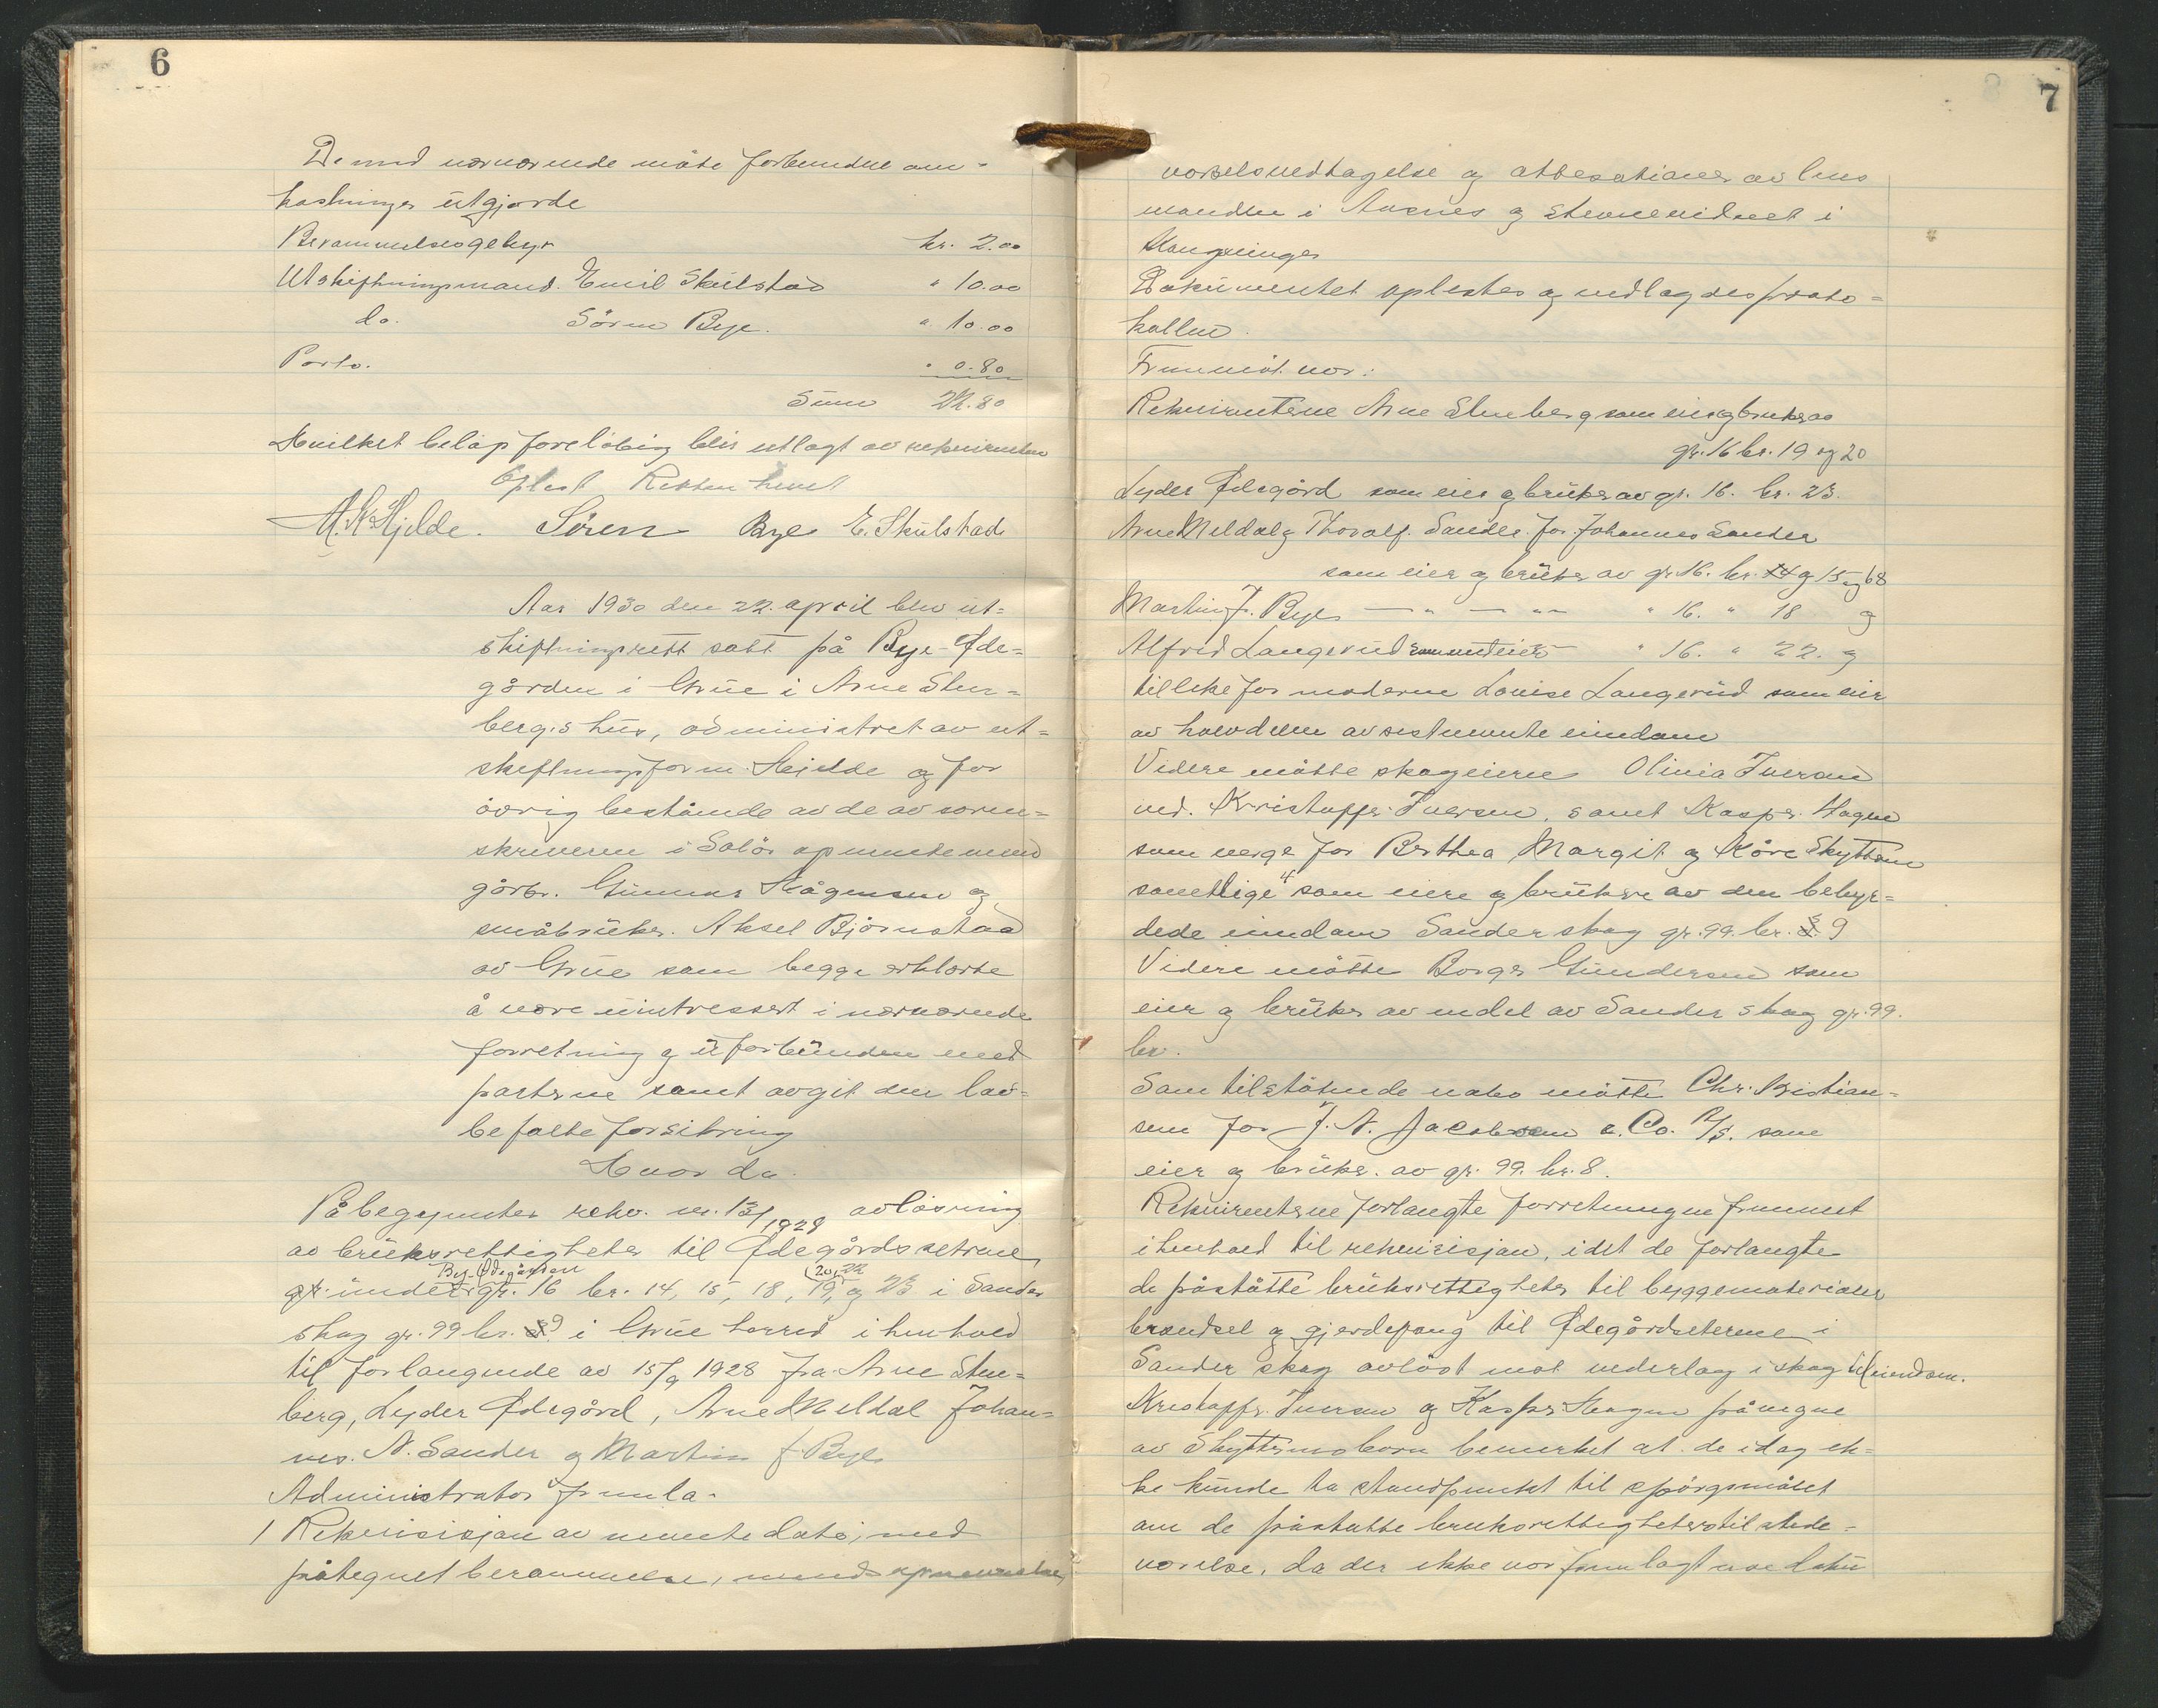 6
De med nærværende møte forbundne om-
kostninger utgjorde
Berammelsesgebyr kr. 2.00
Utskiftningsmand. Emil Skulstad " 10.00
do. Sören Bye. " 10.00
Porto. " 0.80
Sum 22.80
Hvilket beløp foreløbig blir utlagt av rekvirenten
Oplest Retten hevet
M.K. Hjelde. Sören Bye E. Skulstad
Aar 1930 den 22. april blev ut=
skiftningsrett satt på Bye-Øde=
gården i Grue i Arne Sten=
berg's hus, administret av ut=
skiftningsform. Hjelde og for
övrig bestående av de av soren=
skriveren i Solör opnevnte menn
gårbr. Gunnar Hågensen og
småbruker. Aksel Björnstad
av Grue som begge erklærte
å være uintressert i nærværende
forretning og uforbunden med
parterne samt avgit den lov=
befalte forsikring
Hvor da.
Påbegyntes rekv. nr. 13/1928 avlösning
av bruksrettigheter til Ødegårdssetrene
gr. under Bye-Ødegården gr. 16 br. 14, 15, 18, 19, 20, 22 og 23 i Sander
skog gr. 99 br. 9 i Grue herred i henhold
til forlangende av 15/9 1928 fra Arne Sten=
berg, Lyder Ødegård, Arne Meldal Johan=
nes. N. Sander og Martin J. Bye
Administrator fremla.
1 Rekvisisjon av nevnte dato, med
påtegnet berammelse, menns opnevnelse,
7
varselsvedtagelse og attestationer av lens
manden i Aasnes og stevnevidnet i
Kongsvinger
Dokumentet oplestes og vedlagdes proto=
kollen.
Fremmöt var:
Rekvirentene Arne Stenberg som eier og bruker av
gr. 16 br. 19 og 20
Lyder Ødegård som eier og bruker av gr. 16. br. 23.
Arne Meldal og Thoralf. Sander. for Johannes Sander
som eier og bruker av gr. 16. br. 14 og 15 og 68
Martin J. Bye — " — " — " 16. " 18 og
Alfred Langerud som medeier — " 16. " 22. og
tillike for moderen Lovise Langerud som eier
av halvdelen av sistnevnte eiendom
Videre møtte skogeierne Olivia Iversen
ved. Kristoffer Iversen, samt Kasper. Hagen
som verge for Berthea Margit og Kåre Skyttern
samtlige 4 som eiere og brukere av den behyr=
dede eiendom Sander skog gr. 99. br. 9
Videre møtte Borger Gundersen som
eier og bruker av en del av Sander skog gr. 99.
br.
Som tilstötende nabo møtte Chr. Kristian=
sen for J. N. Jacobsen & Co. A/S. som
eier og bruker. av gr. 99. br. 8.
Rekvirenterne forlangte forretningen fremmet
i henhold til rekvisisjon, idet de forlangte
de påståtte bruksrettigheter til byggematerialer
brændsel og gjerdefang til Ødegårdseterene i
Sander skog avlöst mot vederlag i skog til eiendom.
Kristoffer Iversen og Kasper Hagen på vegne
av Skytterns born bemerket at de idag ek=
ke kunde ta standpunkt til spörgsmålet
om de påståtte bruksrettigheters tilstede=
værelse, da der ikke var fremlagt noe doku